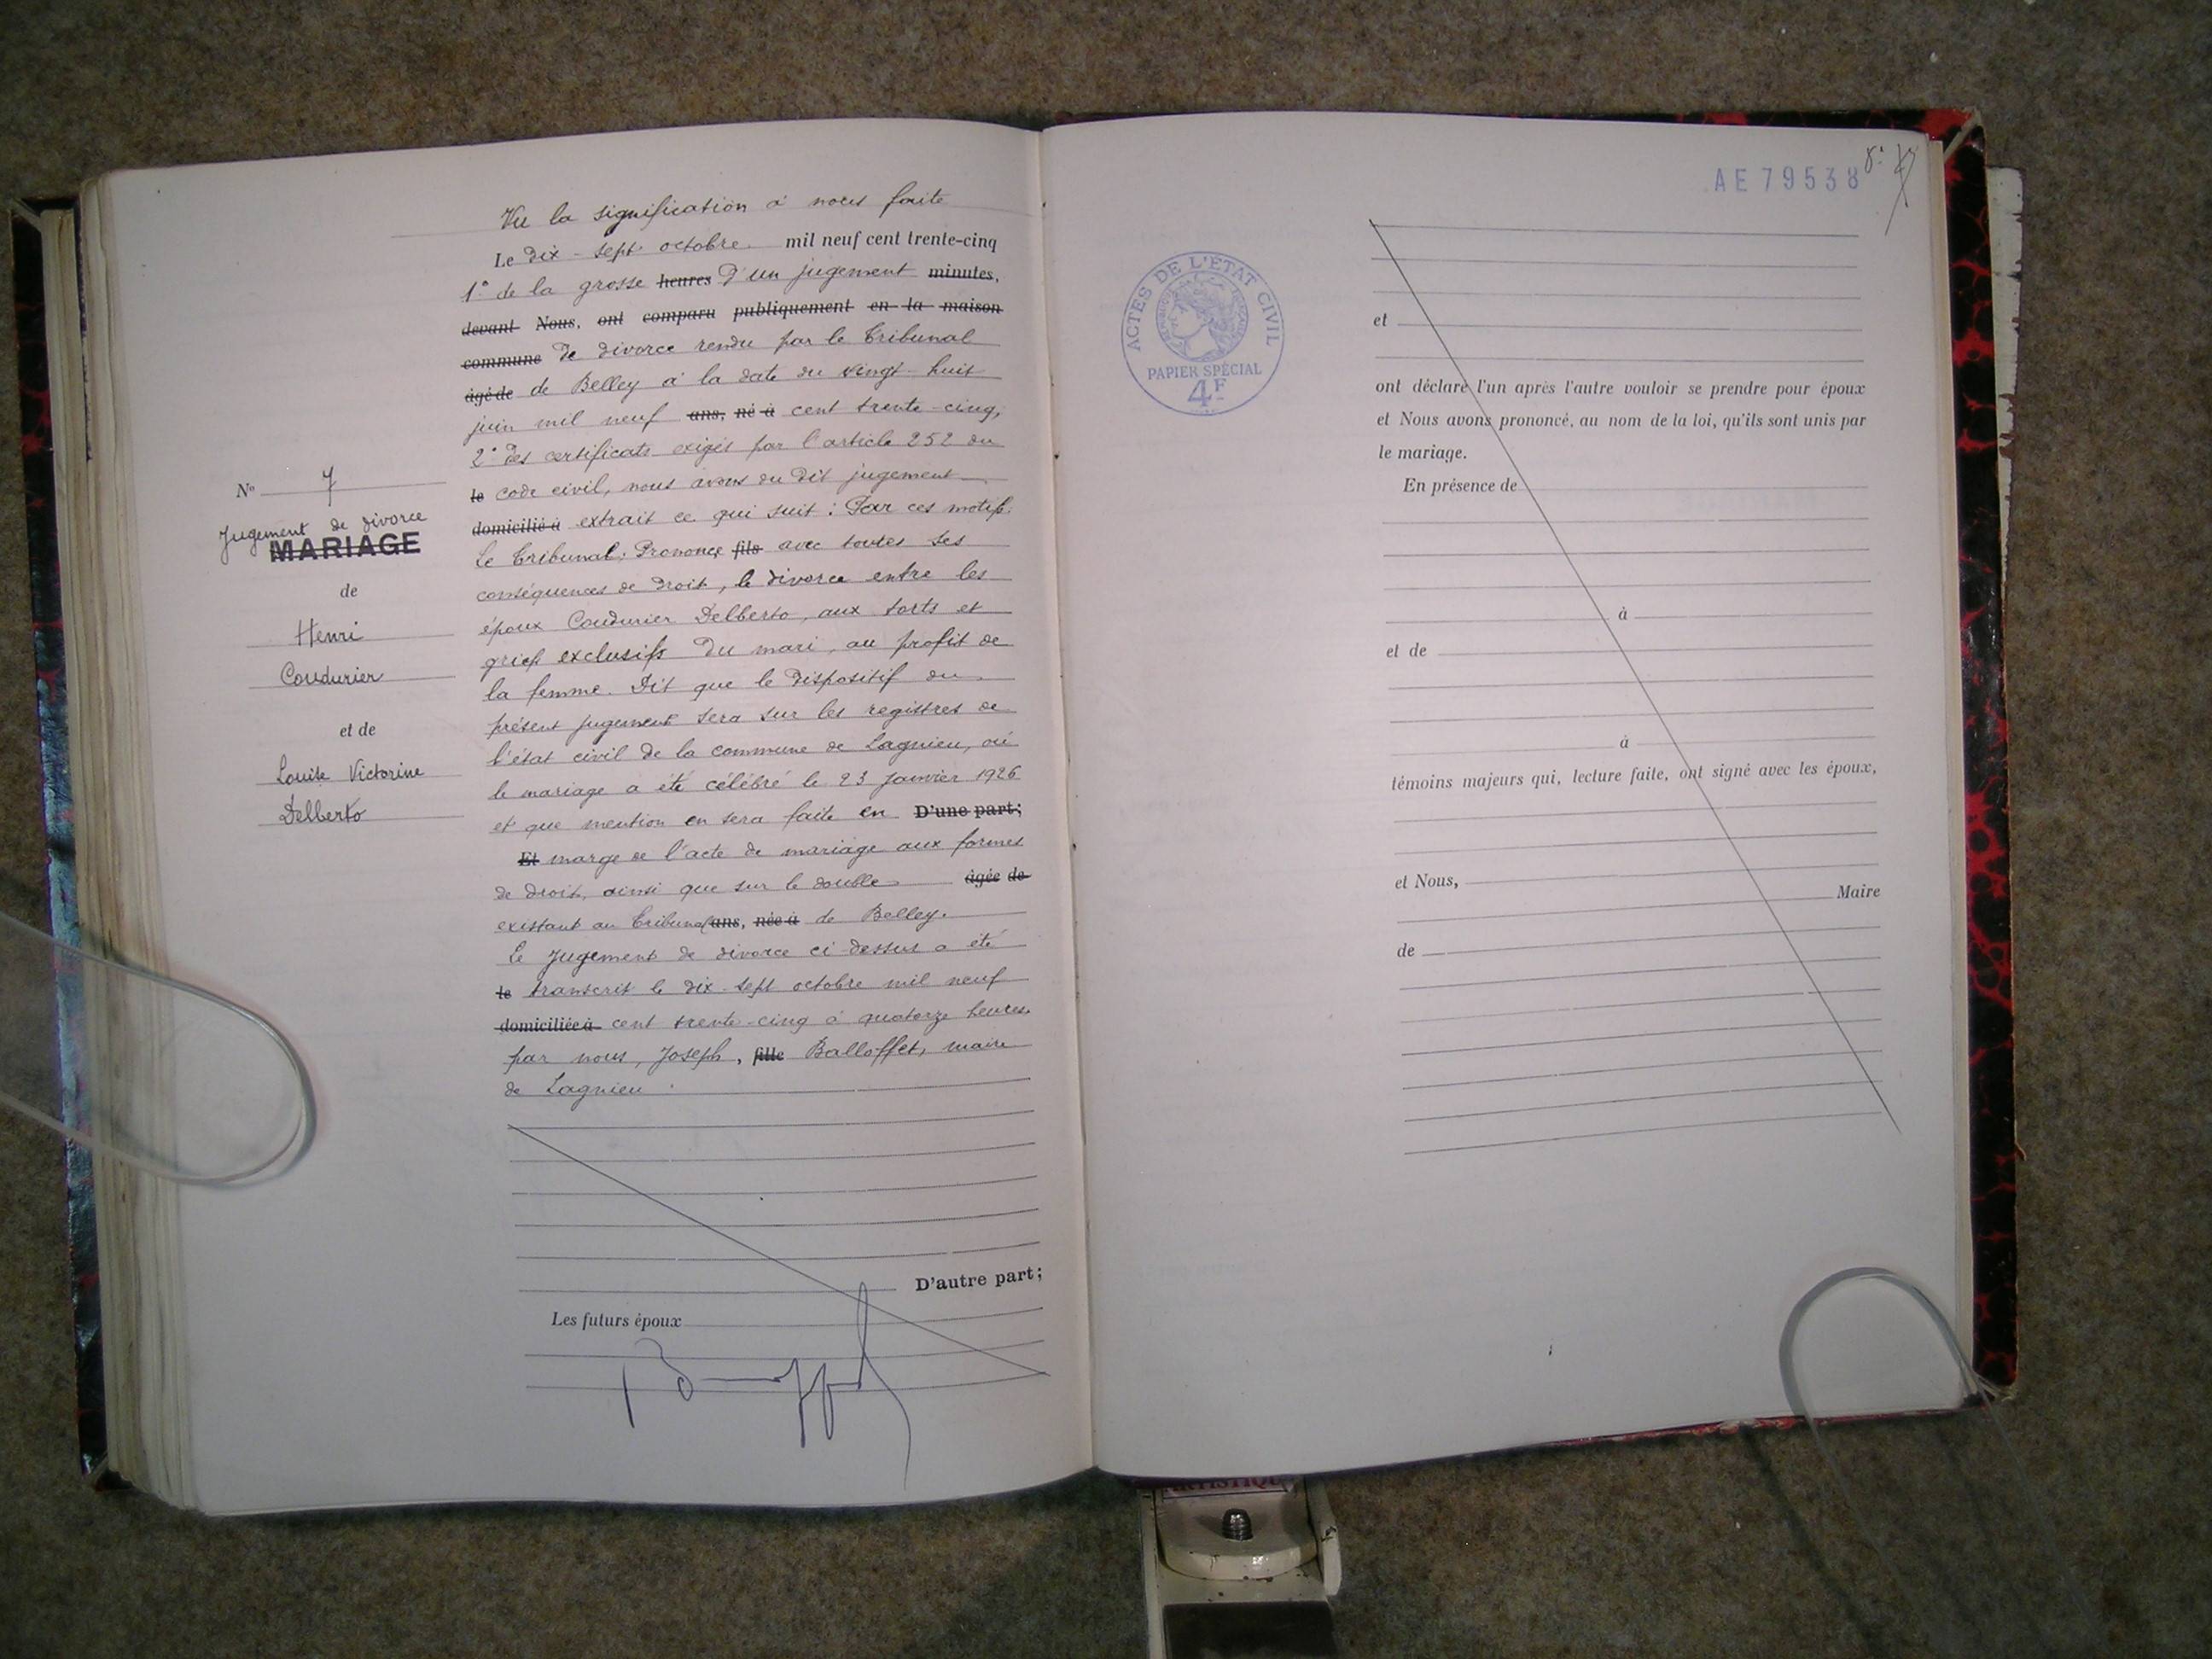 Vu la signification à nous faite
Le dix-sept octobre mil neuf cent trente-cinq
1° de la grosse heures d'un jugement minutes,
devant Nous, ont comparu publiquement en la maison
commune de divorce rendu par le Tribunal
âgé de de Belley à la date du vingt-huit
juin mil neuf ans, né à cent trente-cinq,
2° des certificats exigés par l'article 252 du
le code civil, nous avons du dit jugement
domicilié à extrait ce qui suit : Par ces motifs.
Le Tribunal; Prononce fils avec toutes ses
conséquences de droit, le divorce entre les
époux Coudurier Delberto, aux torts et
griefs exclusifs du mari, au profit de
la femme. Dit que le dispositif du
présent jugement sera sur les registres de
l'état civil de la commune de Lagnieu, où
le mariage a été célébré le 23 Janvier 1926
et que mention en sera faite en D'une part;
Et marge de l'acte de mariage aux formes
de droit, ainsi que sur le double âgée de
existant au Tribunal ans, née à de Belley.
Le jugement de divorce ci-dessus a été
le transcrit le dix-sept octobre mil neuf
domiciliée à cent trente-cinq à quatorze heures
par nous, Joseph, fille Balloffet, maire
de Lagnieu.
D'autre part;
Les futurs époux
N° 7
Jugement de divorce
MARIAGE
de
Henri
Coudurier
et de
Louise Victorine
Delberto
AE 79538
ACTES DE L'ÉTAT CIVIL
RÉPUBLIQUE FRANÇAISE
PAPIER SPÉCIAL
4F
et
ont déclaré l'un après l'autre vouloir se prendre pour époux
et Nous avons prononcé, au nom de la loi, qu'ils sont unis par
le mariage.
En présence de
à
et de
à
témoins majeurs qui, lecture faite, ont signé avec les époux,
et Nous,
Maire
de